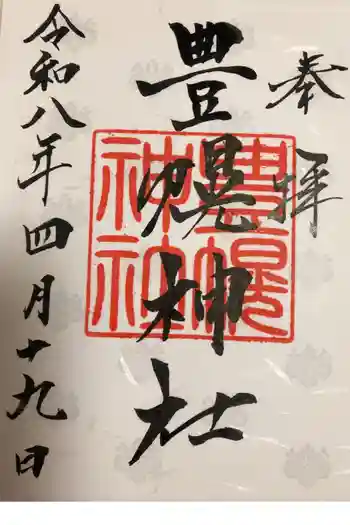 奉拝
豊幌神社
令和八年四月十九日
豊幌神社